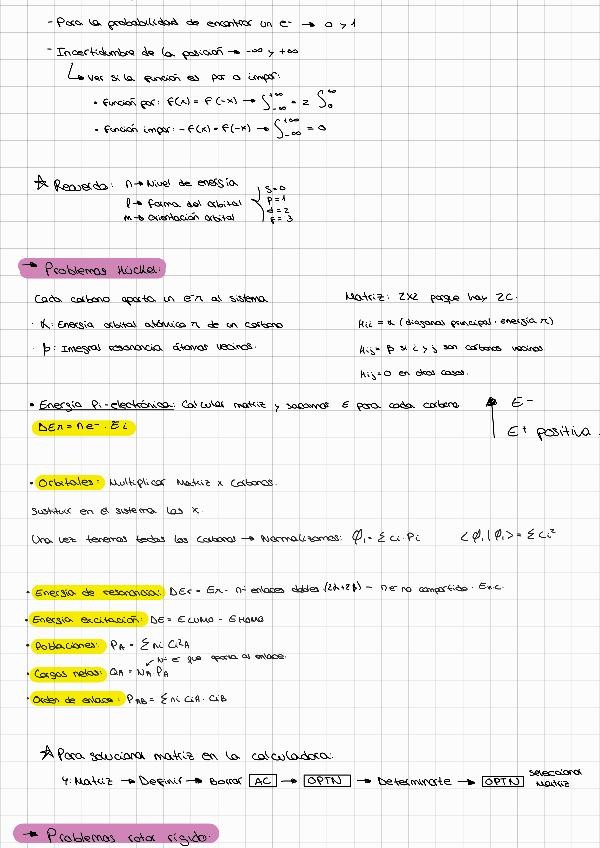 - Para la probabilidad de encontrar un e⁻ → 0 > 1
- Incertidumbre de la posición → -∞ y +∞
↳ Ver si la función es par o impar:
• Función par: F(x) = F(-x) → ∫₋∞⁺∞ = 2 ∫₀∞
• Función impar: -F(x) = F(-x) → ∫₋∞⁺∞ = 0
☆ Recuerda: n → Nivel de energía
l → Forma del orbital
m → Orientación orbital
s = 0
p = 1
d = 2
f = 3
→ Problemas Hückel:
Cada carbono aporta un e⁻π al sistema
· α: Energía orbital atómico π de un carbono
· β: Integral resonancia átomos vecinos.
Matriz: 2x2 porque hay 2C.
Hii = α (diagonal principal · energía π)
Hij = β si i y j son carbonos vecinos
Hij = 0 en otros casos.
• Energía Pi-electrónica: Calcular matriz y sacamos E para cada carbono
DEπ = n e⁻ · Ei
E -
E + positiva.
• Orbitales: Multiplicar Matriz x Carbonos.
Sustituir en el sistema las x.
Una vez tenemos todos los carbonos → Normalizamos: φ₁ = Σci · Pi <φ₁|φ₁> = Σci²
• Energía de resonancia: DEr = Eπ - nº enlaces dobles (2α+2β) - n e⁻ no compartido · Enc.
• Energía excitación: DE = E LUMO - E HOMO
• Poblaciones: PA = Σni Ci²A
↙ Nº e⁻ que aporta al enlace.
• Cargas netas: QA = NA - PA
• Orden de enlace: PAB = Σni CiA · CiB
☆ Para solucionar matriz en la calculadora:
4: Matriz → Definir → Borrar AC → OPTN → Determinante → OPTN seleccionar Matriz
→ Problemas rotor rígido: